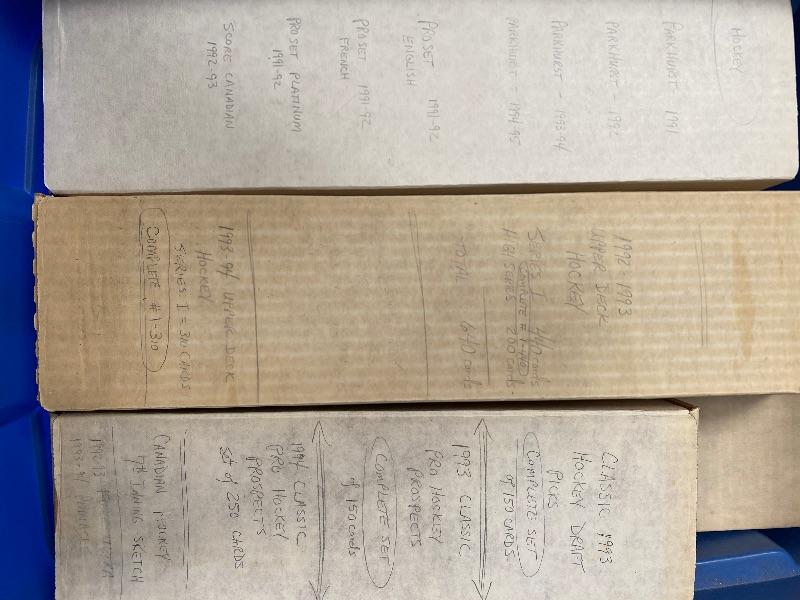 HOCKEY
PARKHURST - 1991
PARKHURST - 1992
PARKHURST - 1993-94
PARKHURST - 1994-95
PRO SET 1991-92
ENGLISH
PRO SET 1991-92
FRENCH
PRO SET PLATINUM
1991-92
SCORE CANADIAN
1992-93
1992 1993
UPPER DECK
HOCKEY
SERIES I 440 cards
COMPLETE # 1-440
HIGH SERIES 200 cards
TOTAL 640 cards
1993-94 UPPER DECK
HOCKEY
SERIES I = 310 CARDS
COMPLETE # 1-310
CLASSIC 1993
HOCKEY DRAFT
PICKS
COMPLETE SET
of 150 CARDS
1993 CLASSIC
PRO HOCKEY
PROSPECTS
COMPLETE SET
of 150 cards
1994 CLASSIC
PRO HOCKEY
PROSPECTS
set of 250 CARDS
CANADIAN HOCKEY
7th INNING SKETCH